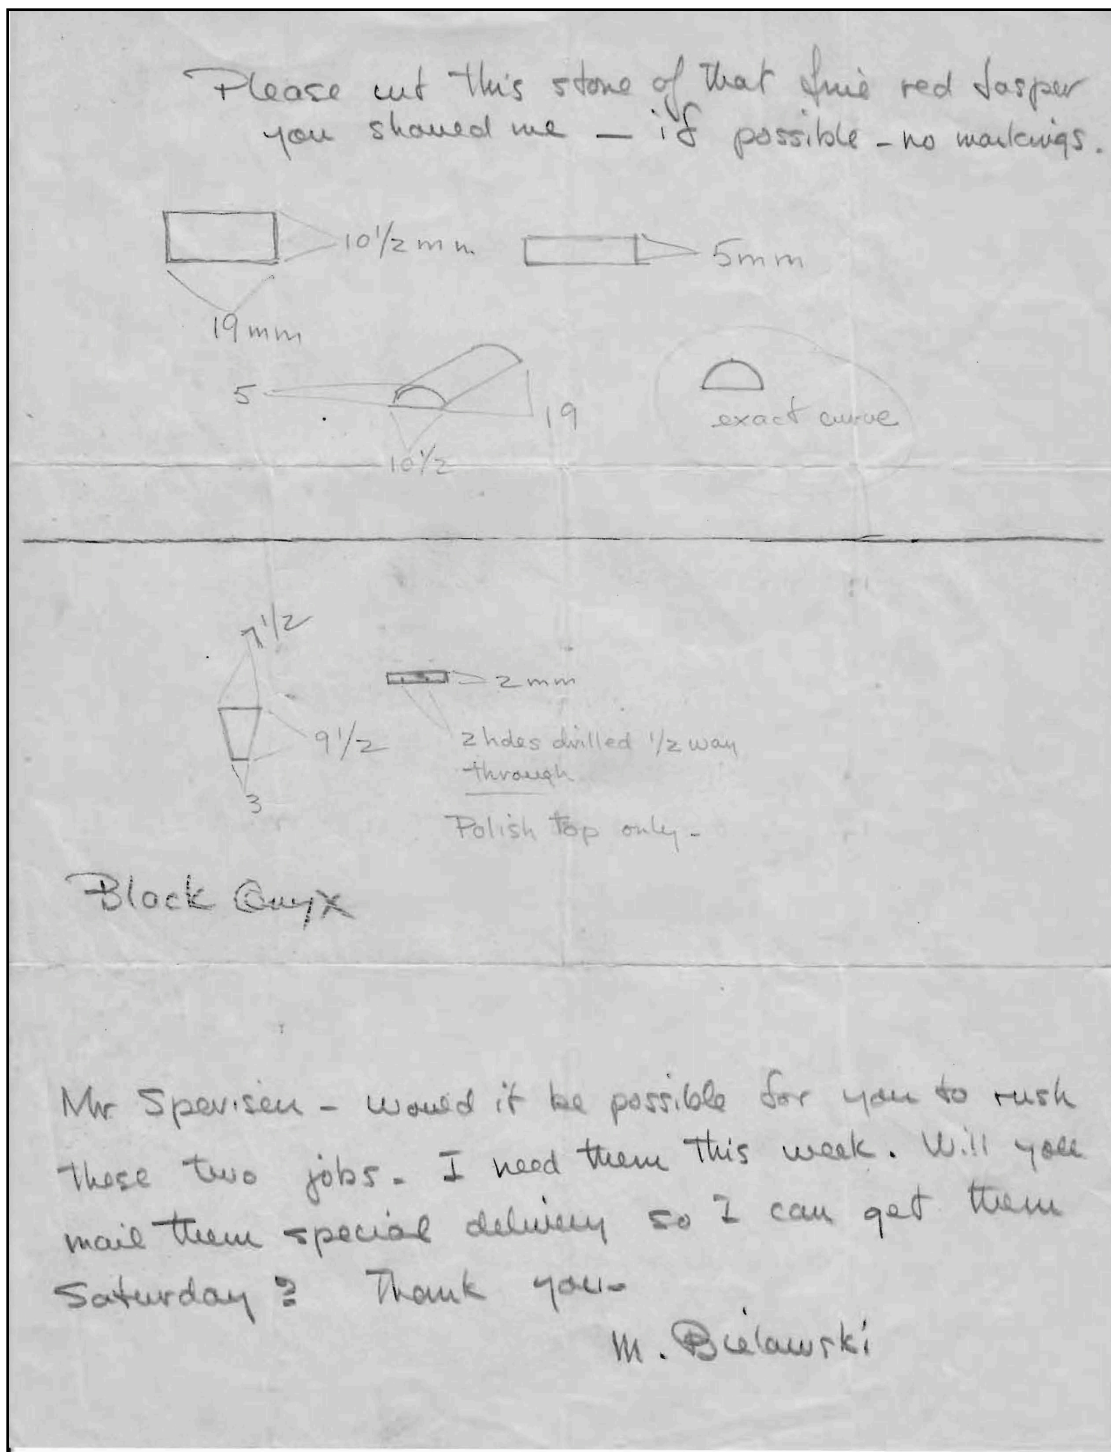 Please cut this stone of that fine red Jasper
you showed me — if possible - no markings.
10 1/2 mm
5mm
19 mm
5
19
10 1/2
exact curve
7 1/2
2 mm
9 1/2
2 holes drilled 1/2 way
through
3
Polish top only -
Black Onyx
Mr Spevisen - would it be possible for you to rush
these two jobs. I need them this week. Will you
mail them special delivery so I can get them
Saturday? Thank you -
M. Bielawski